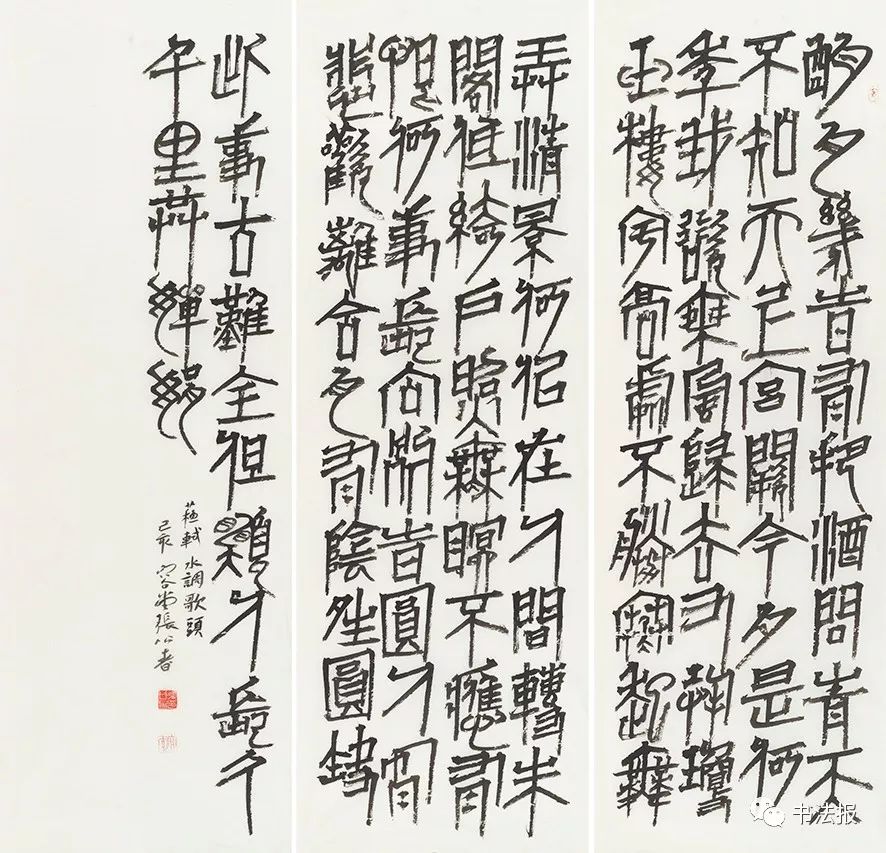 明月幾時有把酒問青天
不知天上宮闕今夕是何
年我欲乘風歸去又恐瓊
玉樓宇高處不勝寒起舞
弄清影何似在人間轉朱
閣低綺戶照無眠不應有
恨何事長向別時圓人有
悲歡離合月有陰晴圓缺
此事古難全但願人長久
千里共嬋娟
蘇軾 水調歌頭
己亥 張公者
书法报